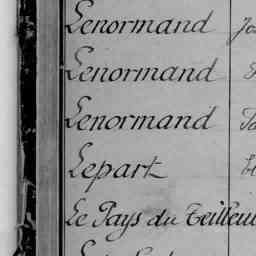 Lenormand
Lenormand
Lenormand
Lepart
Le Pays du Teilleul